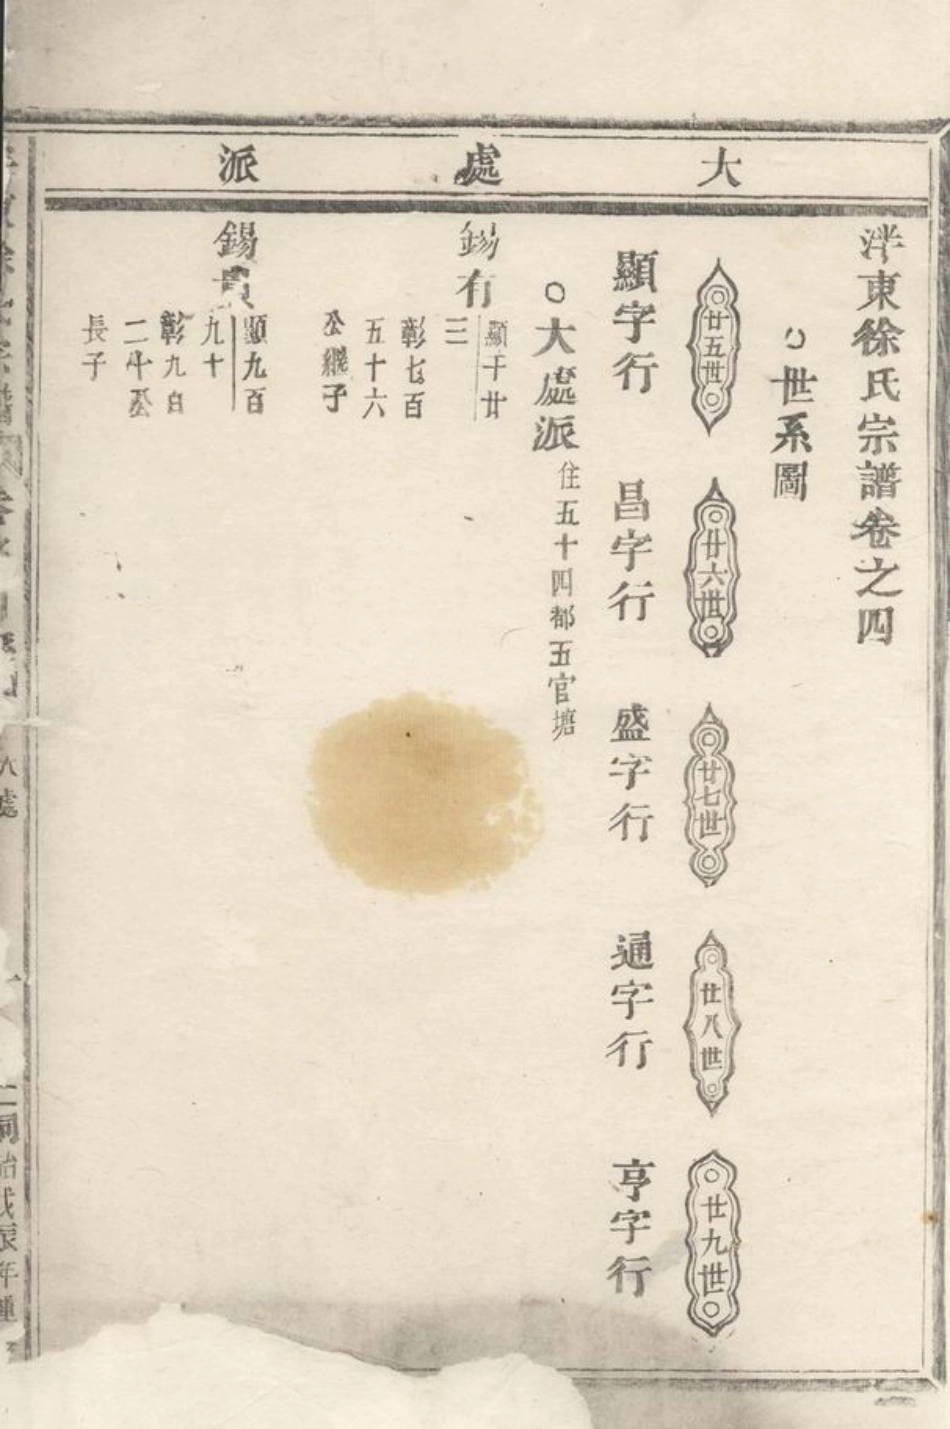 大處派
泮東徐氏宗譜卷之四
○世系圖
廿五世 廿六世 廿七世 廿八世 廿九世
顯字行 昌字行 盛字行 通字行 亨字行
○大處派 住五十四都五官塘
錫有
顯千廿
三
彰七百
五十六
公繼子
錫貫
顯九百
九十
彰九百
二十公
長子
八處
同治戊辰年重